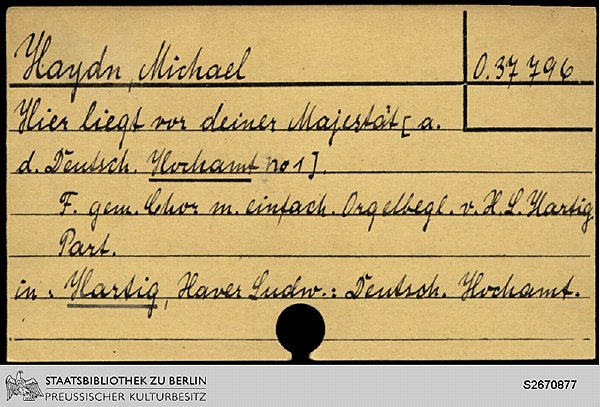 Haydn, Michael
O. 37 796
Hier liegt vor deiner Majestät [a.
d. Deutsch. Hochamt no 1].
F. gem. Chor m. einfach. Orgelbegl. v. H. L. Hartig.
Part.
in: Hartig, Haver Ludw.: Deutsch. Hochamt.
STAATSBIBLIOTHEK ZU BERLIN
PREUSSISCHER KULTURBESITZ
S2670877